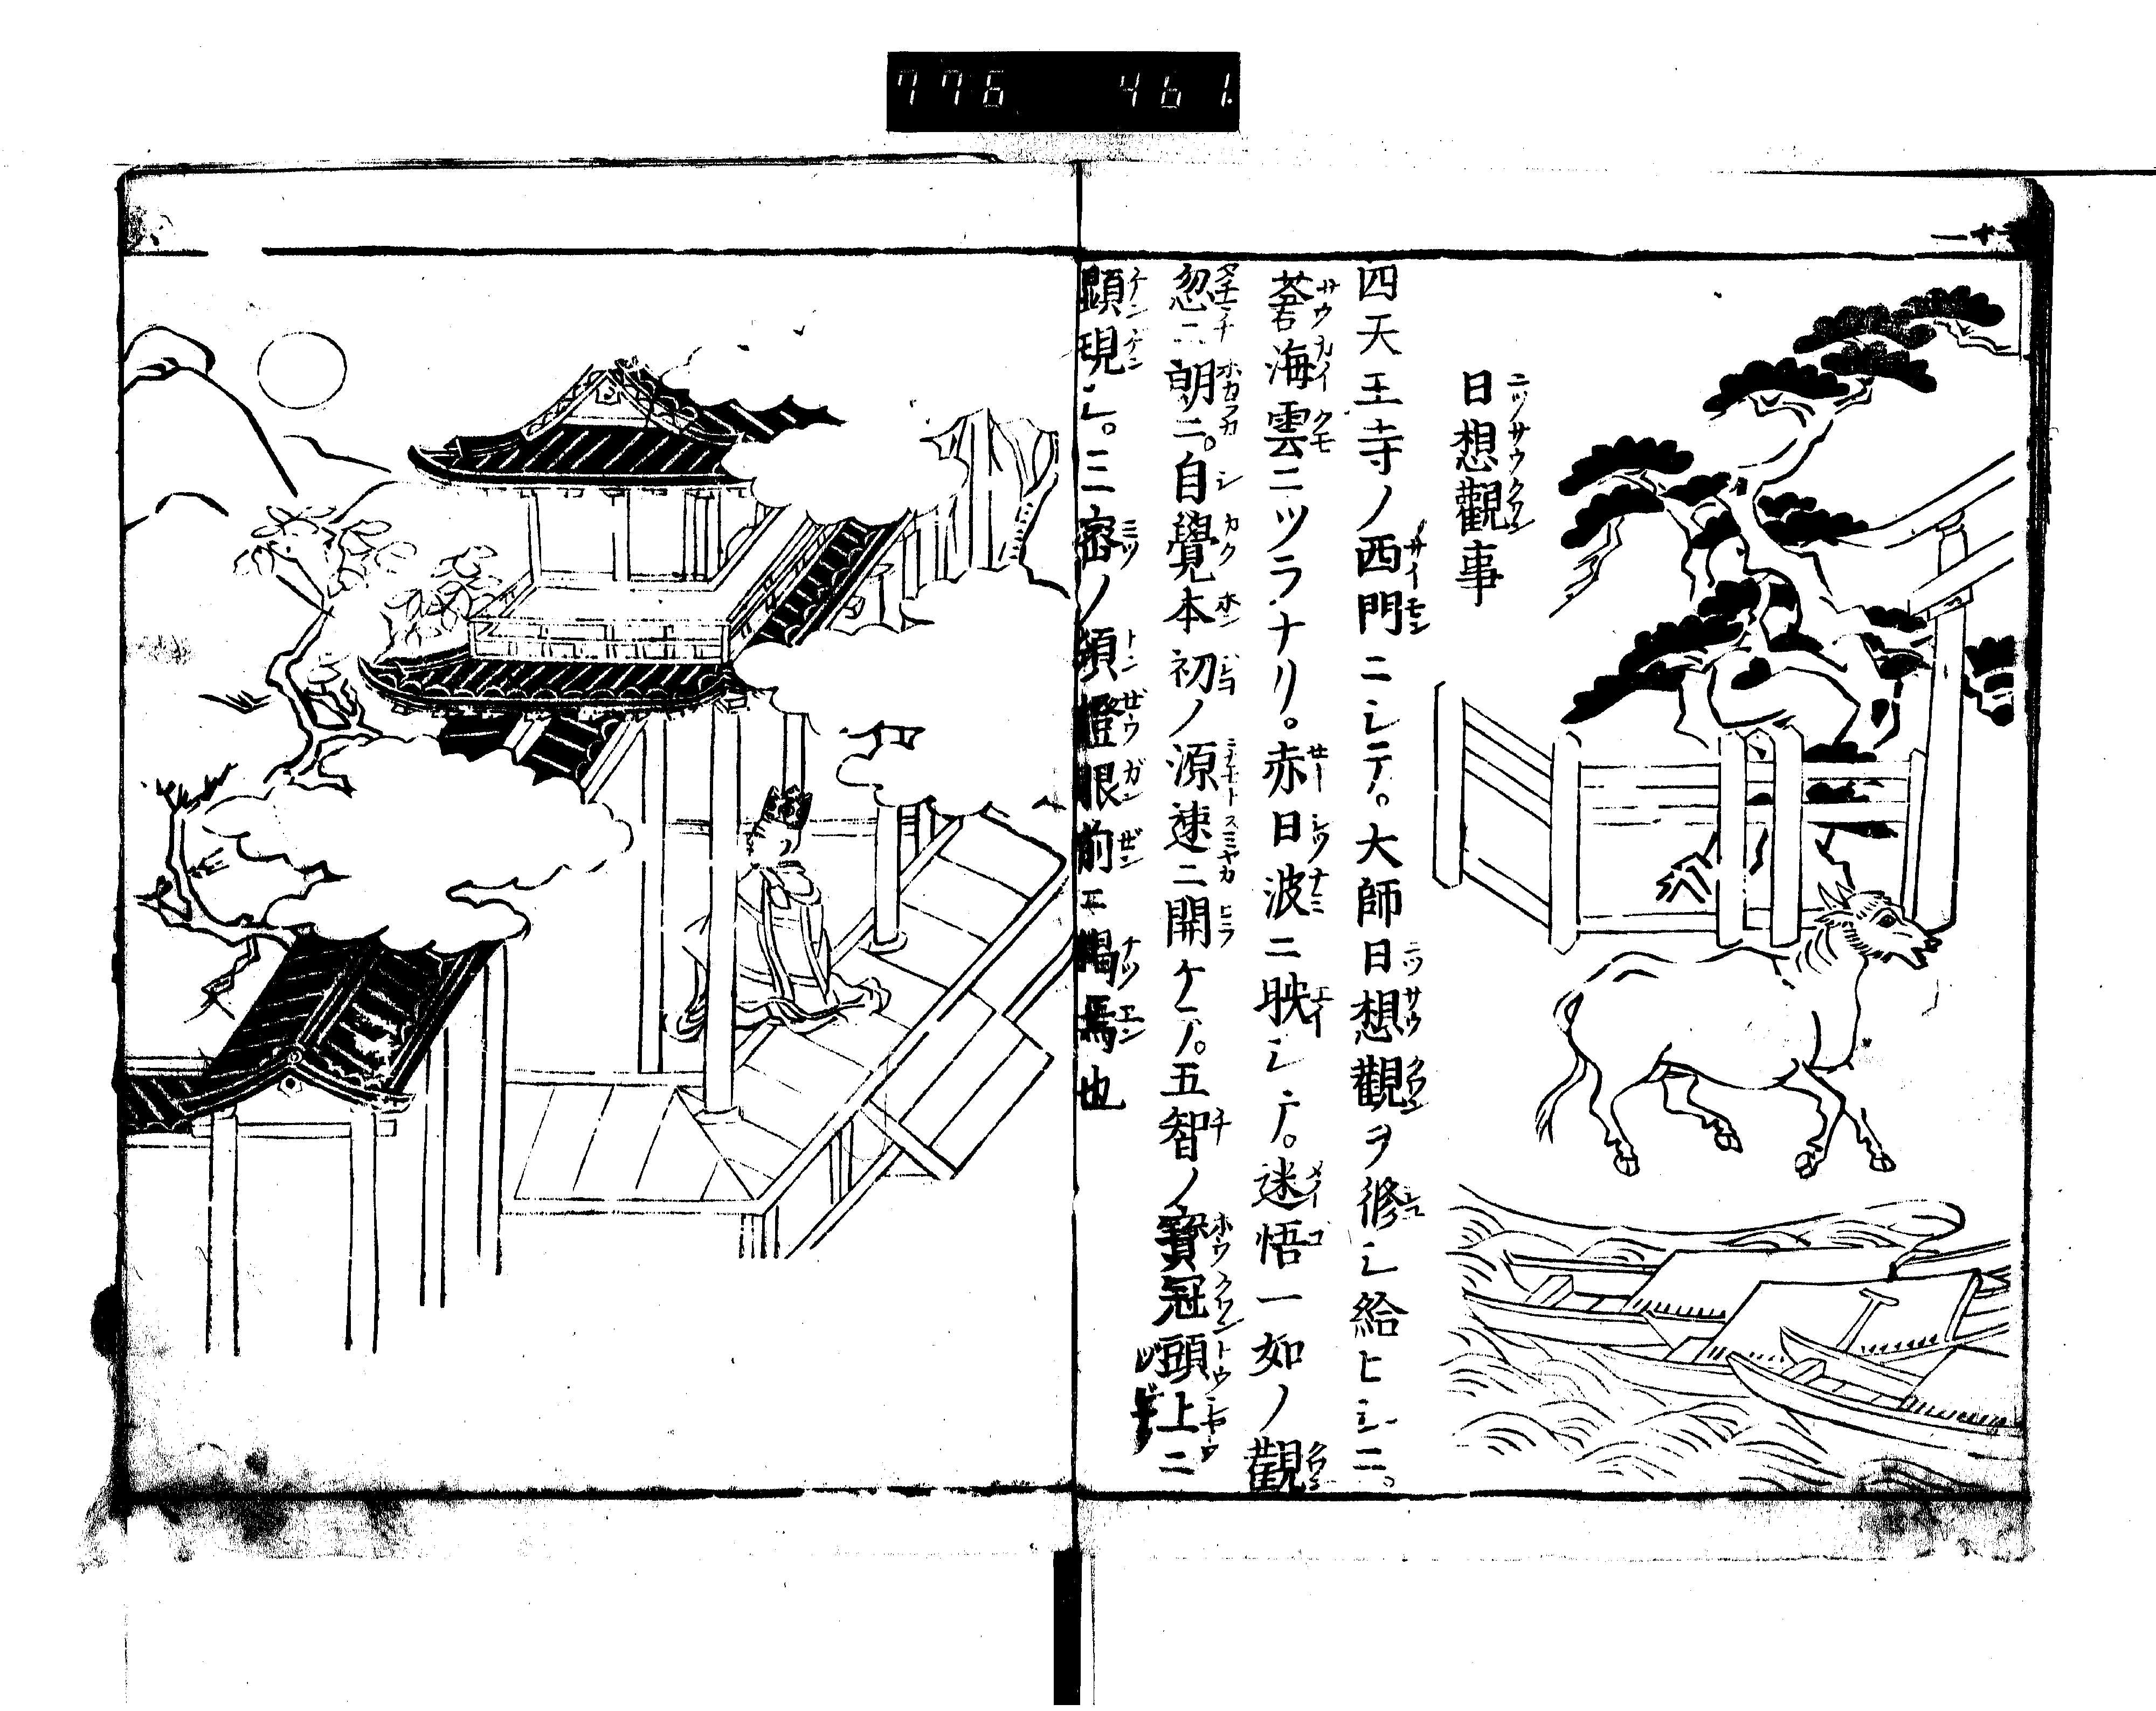 776 461
十一
日想觀事
四天王寺ノ西門ニシテ。大師日想觀ヲ修シ給ヒシニ。
蒼海雲ニツラナリ。赤日波ニ映シテ。迷悟一如ノ觀
忽ニ朗ニ。自覺本初ノ源速ニ開ケテ。五智ノ寶冠頭上ニ
顕現シ。三密ノ頓證眼前ニ掲焉也